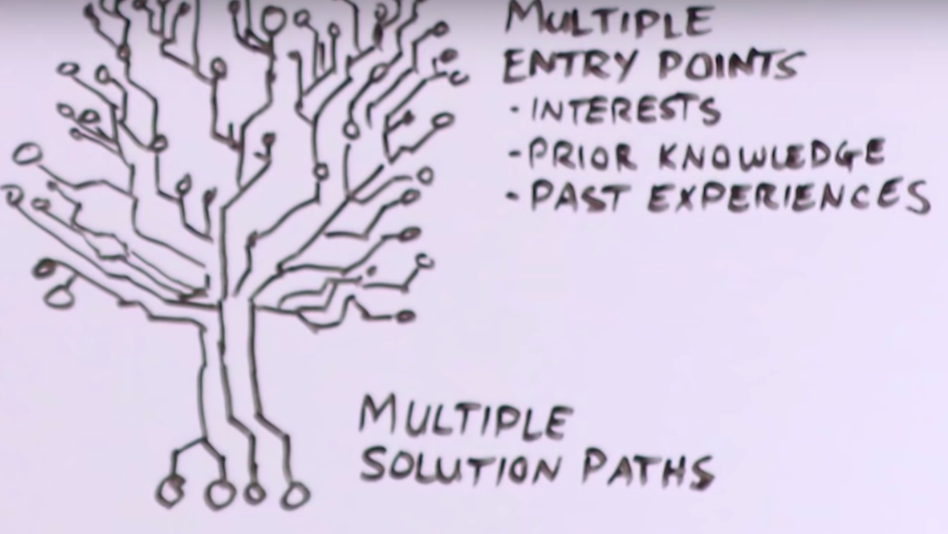 MULTIPLE
ENTRY POINTS
· INTERESTS
- PRIOR KNOWLEDGE
· PAST EXPERIENCES
MULTIPLE
SOLUTION PATHS